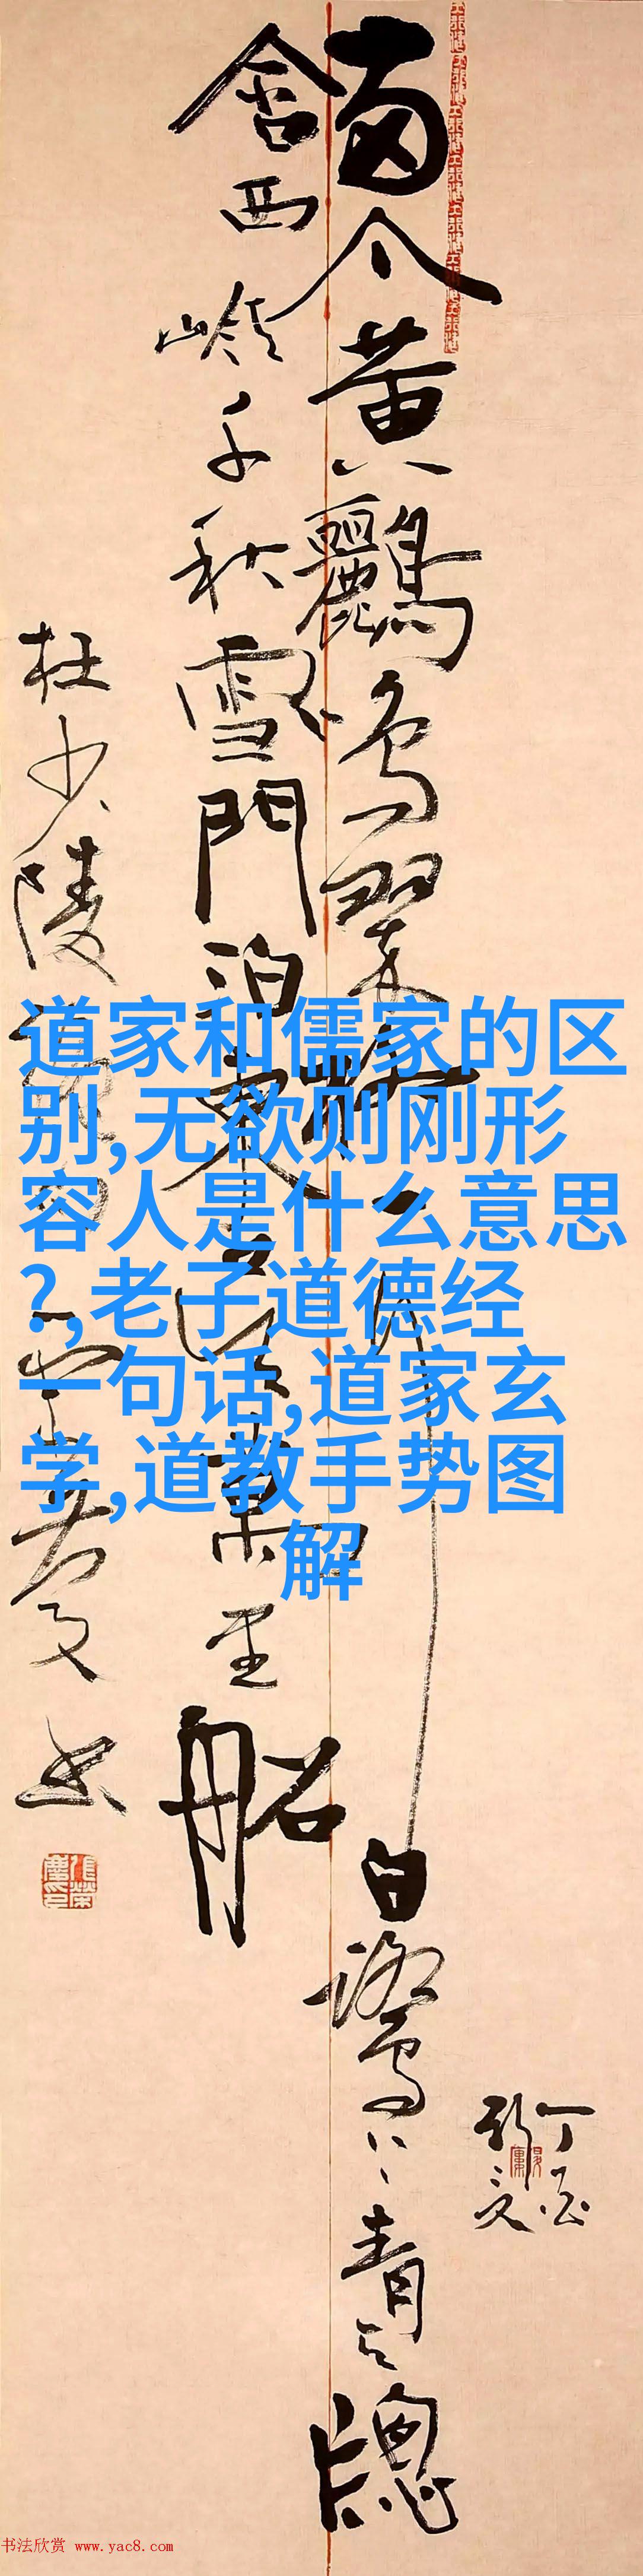 兩个黄鸝鸣翠柳一行白鷺上青天牕
含西岭千秋雪門泊東吴萬里船
杜少陵
道家和儒家的区
别,无欲则刚形
容人是什么意思
?,老子道德经
一句话,道家玄
学,道教手势图
解
丁酉
书法欣赏 www.yac8.com